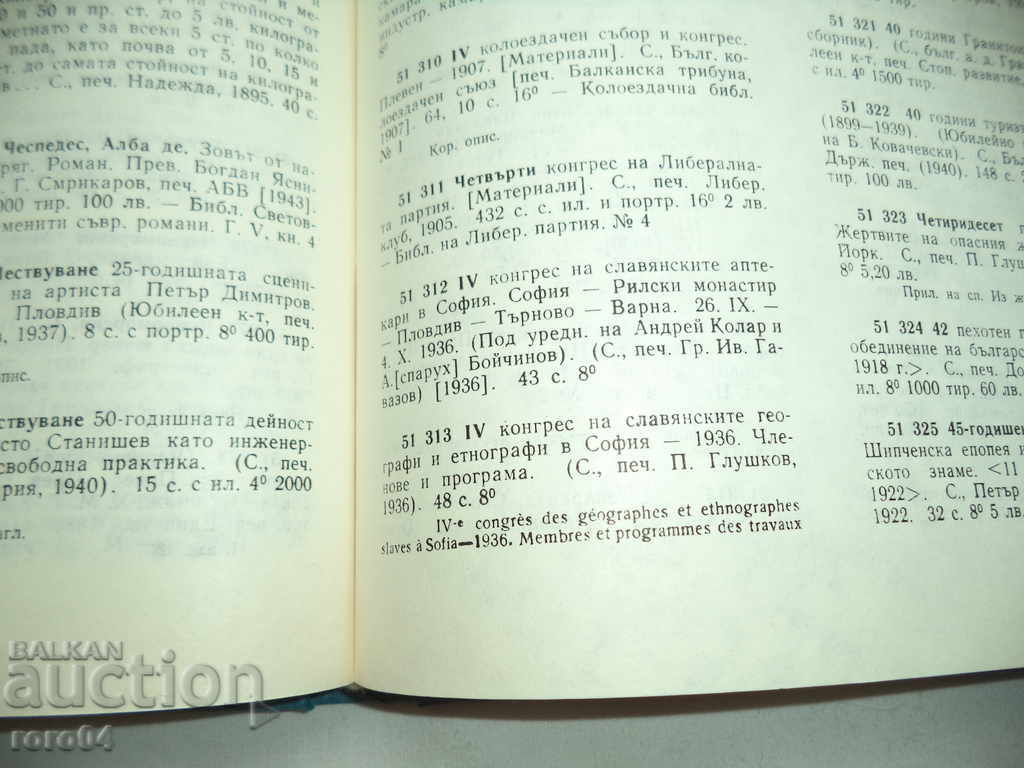 0 и 50 и пр. ст. до 5 лв. килогра-
метнато е за всеки 5 ст. по колко
пада, като почва от 5, 10, 15 и
т. до самата стойност на килогра-
в... С., печ. Надежда, 1895. 40 с.
Чеспедес, Алба де. Зовът от на-
ряг. Роман. Прев. Богдан Ясни-
Г. Смрикаров, печ. АБВ [1943].
000 тир. 100 лв. — Библ. Световно
менити съвр. романи. Г. V, кн. 4
Чествуване 25-годишната сцени-
на артиста Петър Димитров.
Пловдив (Юбилеен к-т, печ.
1937). 8 с. с портр. 8⁰ 400 тир.
опис.
ствуване 50-годишната дейност
сто Станишев като инженер-
свободна практика. (С., печ.
рия, 1940). 15 с. с ил. 4⁰ 2000
нгл.
камара
индустр. кам
8⁰
51 310 IV колоездачен събор и конгрес.
Плевен — 1907. [Материали]. С., Бълг. ко-
лоездачен съюз [печ. Балканска трибуна,
1907]. 64, 10 с. 16⁰ — Колоездачна библ.
№ 1
Кор. опис.
51 311 Четвърти конгрес на Либерална-
та партия. [Материали]. С., печ. Либер.
клуб, 1905. 432 с. с ил. и портр. 16⁰ 2 лв.
— Библ. на Либер. партия. № 4
51 312 IV конгрес на славянските апте-
кари в София. София — Рилски монастир
— Пловдив — Търново — Варна. 26. IX. —
4. X. 1936. (Под уредн. на Андрей Колар и
А.[спарух] Бойчинов). (С., печ. Гр. Ив. Га-
вазов) [1936]. 43 с. 8⁰
51 313 IV конгрес на славянските гео-
графи и етнографи в София — 1936. Чле-
нове и програма. (С., печ. П. Глушков,
1936). 48 с. 8⁰
IV-e congrès des géographes et ethnographes
slaves à Sofia—1936. Membres et programmes des travaux
тир.
51 321 40 години Гранитов
сборник). (С., бълг. а. д. Гра
леен к-т, печ. Стоп. развитие,
с ил. 4⁰ 1500 тир.
51 322 40 години туриз
(1899—1939). (Юбилейно
на Б. Ковачевски). С., Бъ
Държ. печ. (1940). 148 с.
тир. 100 лв.
51 323 Четиридесет
Жертвите на опасния ж
Йорк. С., печ. П. Глуш
8⁰ 5,20 лв.
Прил. на сп. Из ж
51 324 42 пехотен п
обединение на българс
1918 г.>. С., печ. До
ил. 8⁰ 1000 тир. 60 лв.
51 325 45-годишен
Шипченска епопея и
ското знаме. <11
1922>. С., Петър
1922. 32 с. 8⁰ 5 лв.
BALKAN
auction
roro04